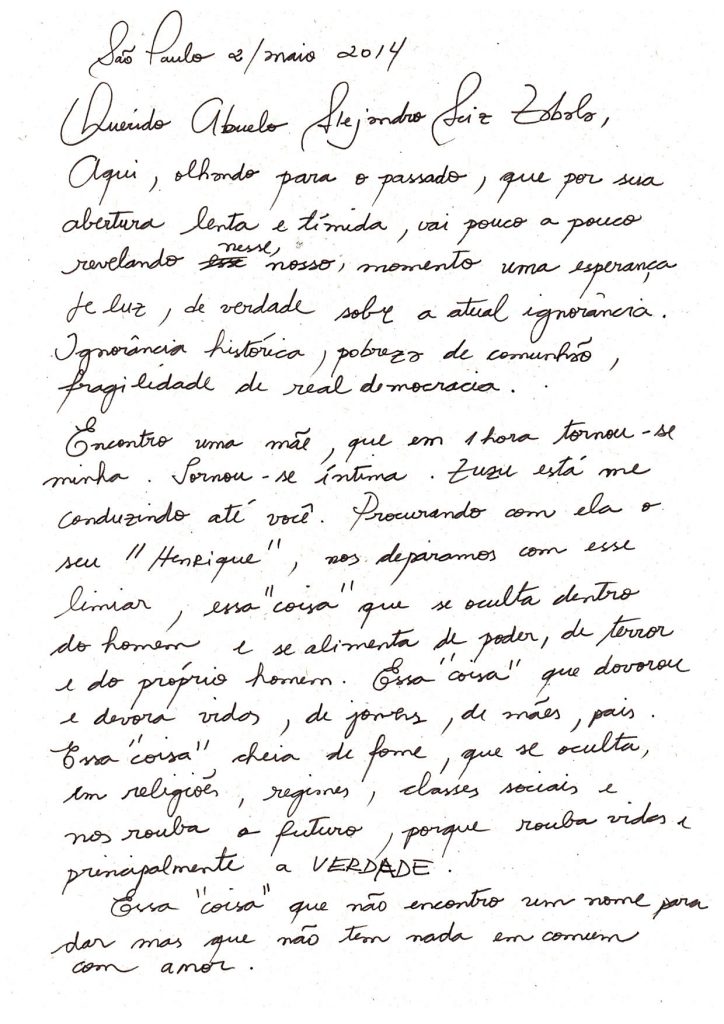 São Paulo 2/maio 2014
Querido Abuelo Alejandro Zobolo,
Aqui, olhando para o passado, que por sua
abertura lenta e tímida, vai pouco a pouco
revelando esse nesse, nosso, momento uma esperança
de luz, de verdade sobre a atual ignorância.
Ignorância histórica, pobreza de comunhão,
fragilidade de real democracia.
Encontro uma mãe, que em 1 hora tornou-se
minha. Tornou-se íntima. Zuzu está me
conduzindo até você. Procurando com ela o
seu "Henrique", nos deparamos com esse
limiar, essa "coisa" que se oculta dentro
do homem e se alimenta de poder, de terror
e do próprio homem. Essa "coisa" que dovorou
e devora vidas, de jovens, de mães, pais.
Essa "coisa" cheia de fome, que se oculta,
em religiões, regimes, classes sociais e
nos rouba o futuro, porque rouba vidas e
principalmente a VERDADE.
Essa "coisa" que não encontro um nome para
dar mas que não tem nada em comum
com amor.